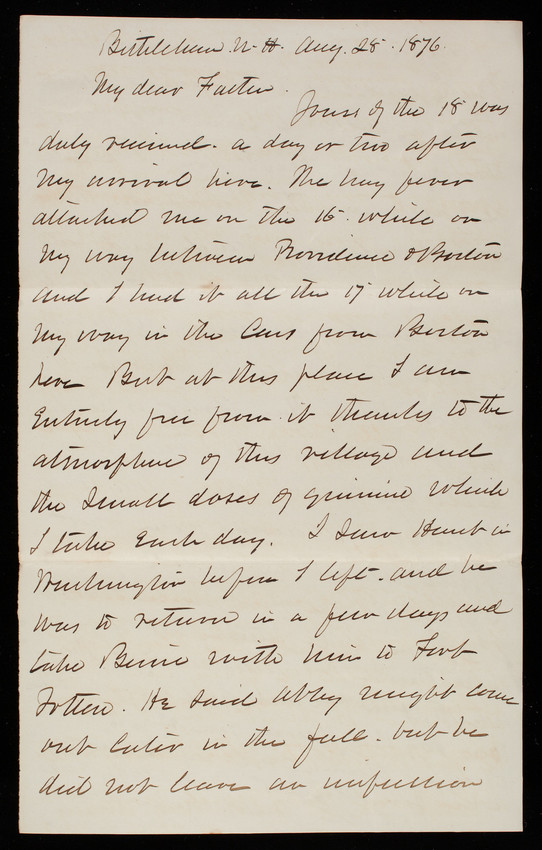 Bethlehem N. H. Aug. 28. 1876.
My dear Father.
Yours of the 18 was
duly received. a day or two after
my arrival here. The hay fever
attacked me on the 16. while on
my way between Providence & Boston
and I had it all the 17 while on
my way in the Cars from Boston
here But at this place I am
Entirely free from it thanks to the
atmosphere of this village and
the small doses of quinine which
I take Each day. I saw Hunt in
Washington before I left. and he
was to return in a few days and
take with him to Fort
Totten. He said Abbey might come
out later in the fall. but he
did not leave an impression